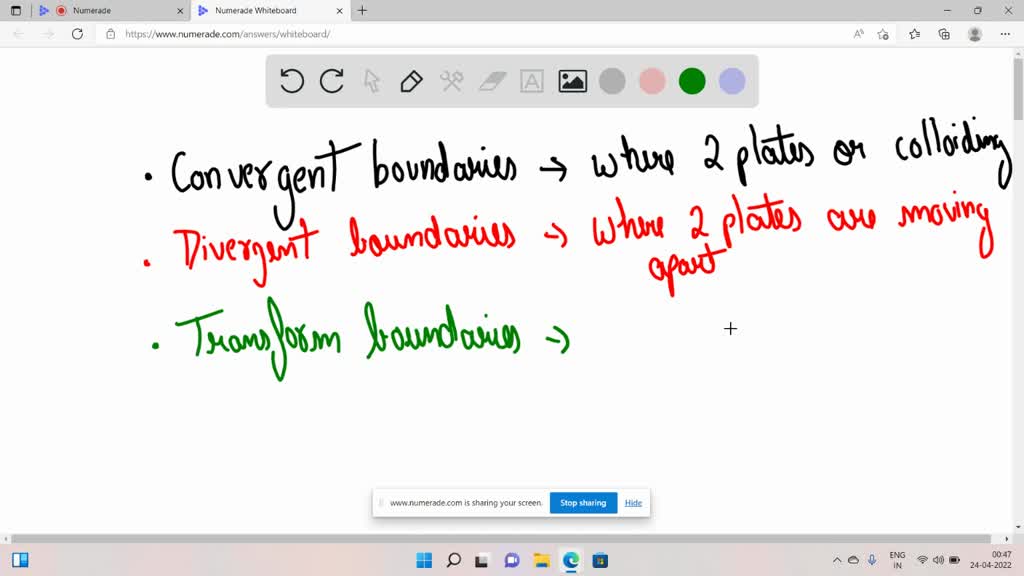 Numerade
Numerade Whiteboard
https://www.numerade.com/answers/whiteboard/
A
. Convergent boundaries → where 2 plates or colloiding
. Divergent boundaries → where 2 plates are moving
apart
. Transform boundaries →
www.numerade.com is sharing your screen. Stop sharing Hide
ENG
IN
00:47
24-04-2022